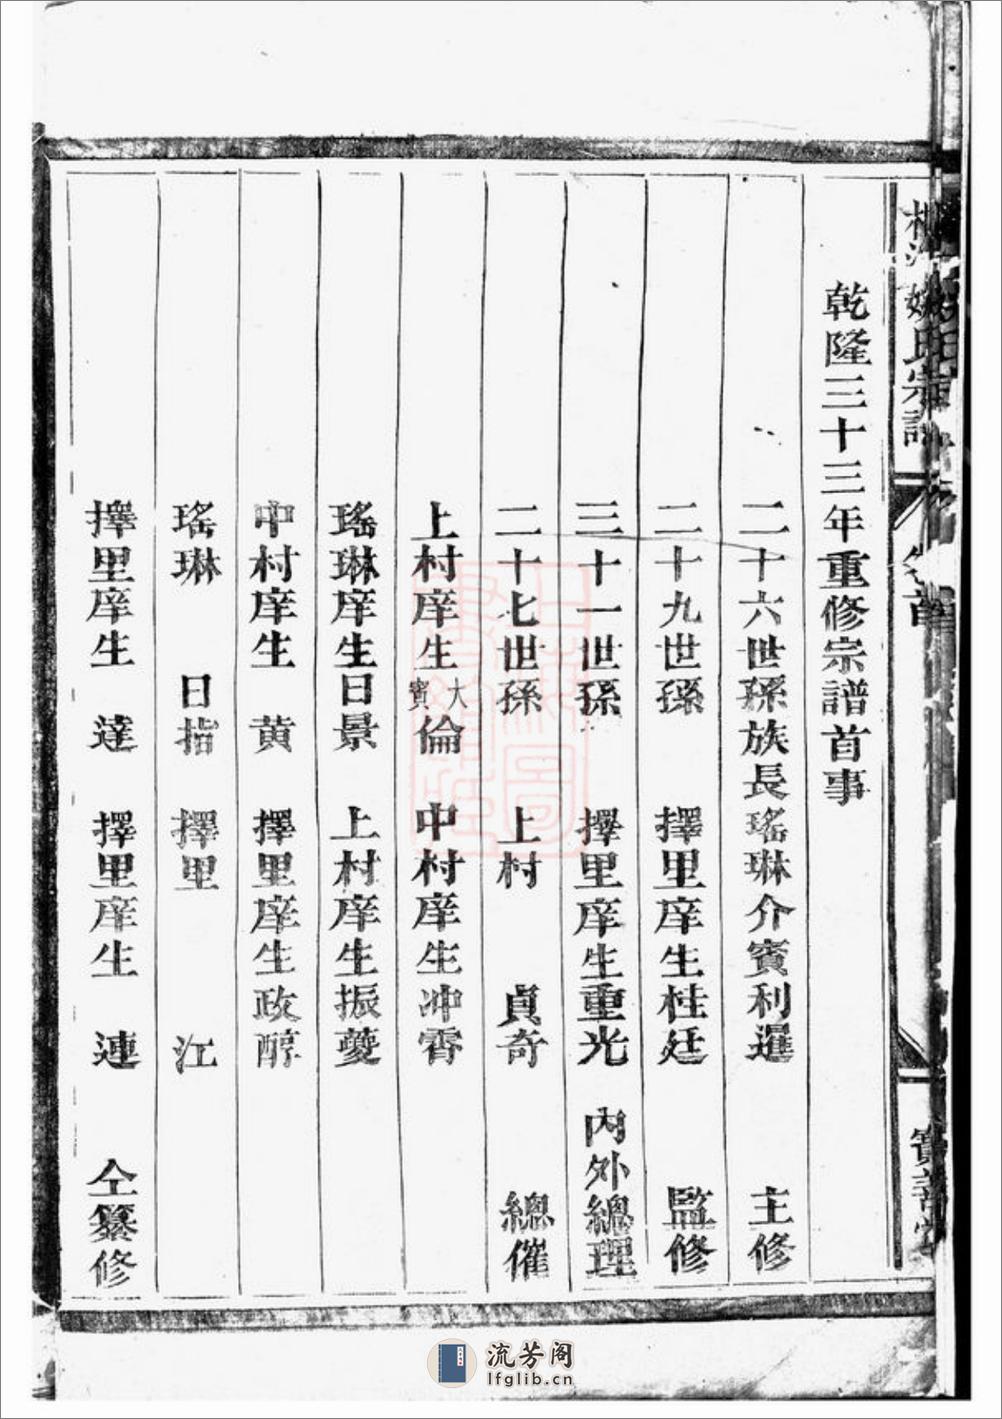 姚氏宗譜
卷首
寶善堂
乾隆三十三年重修宗譜首事
二十六世孫族長瑤琳介賓利暹 主修
二十九世孫 擇里庠生桂廷 監修
三十一世孫 擇里庠生重光 內外總理
二十七世孫 上村 貞奇 總催
上村庠生大賓倫 中村庠生冲霄
瑤琳庠生日景 上村庠生振夔
中村庠生 黃 擇里庠生政醇
瑤琳 日指 擇里 江
擇里庠生 達 擇里庠生 連 仝纂修
流芳阁
lfglib.cn